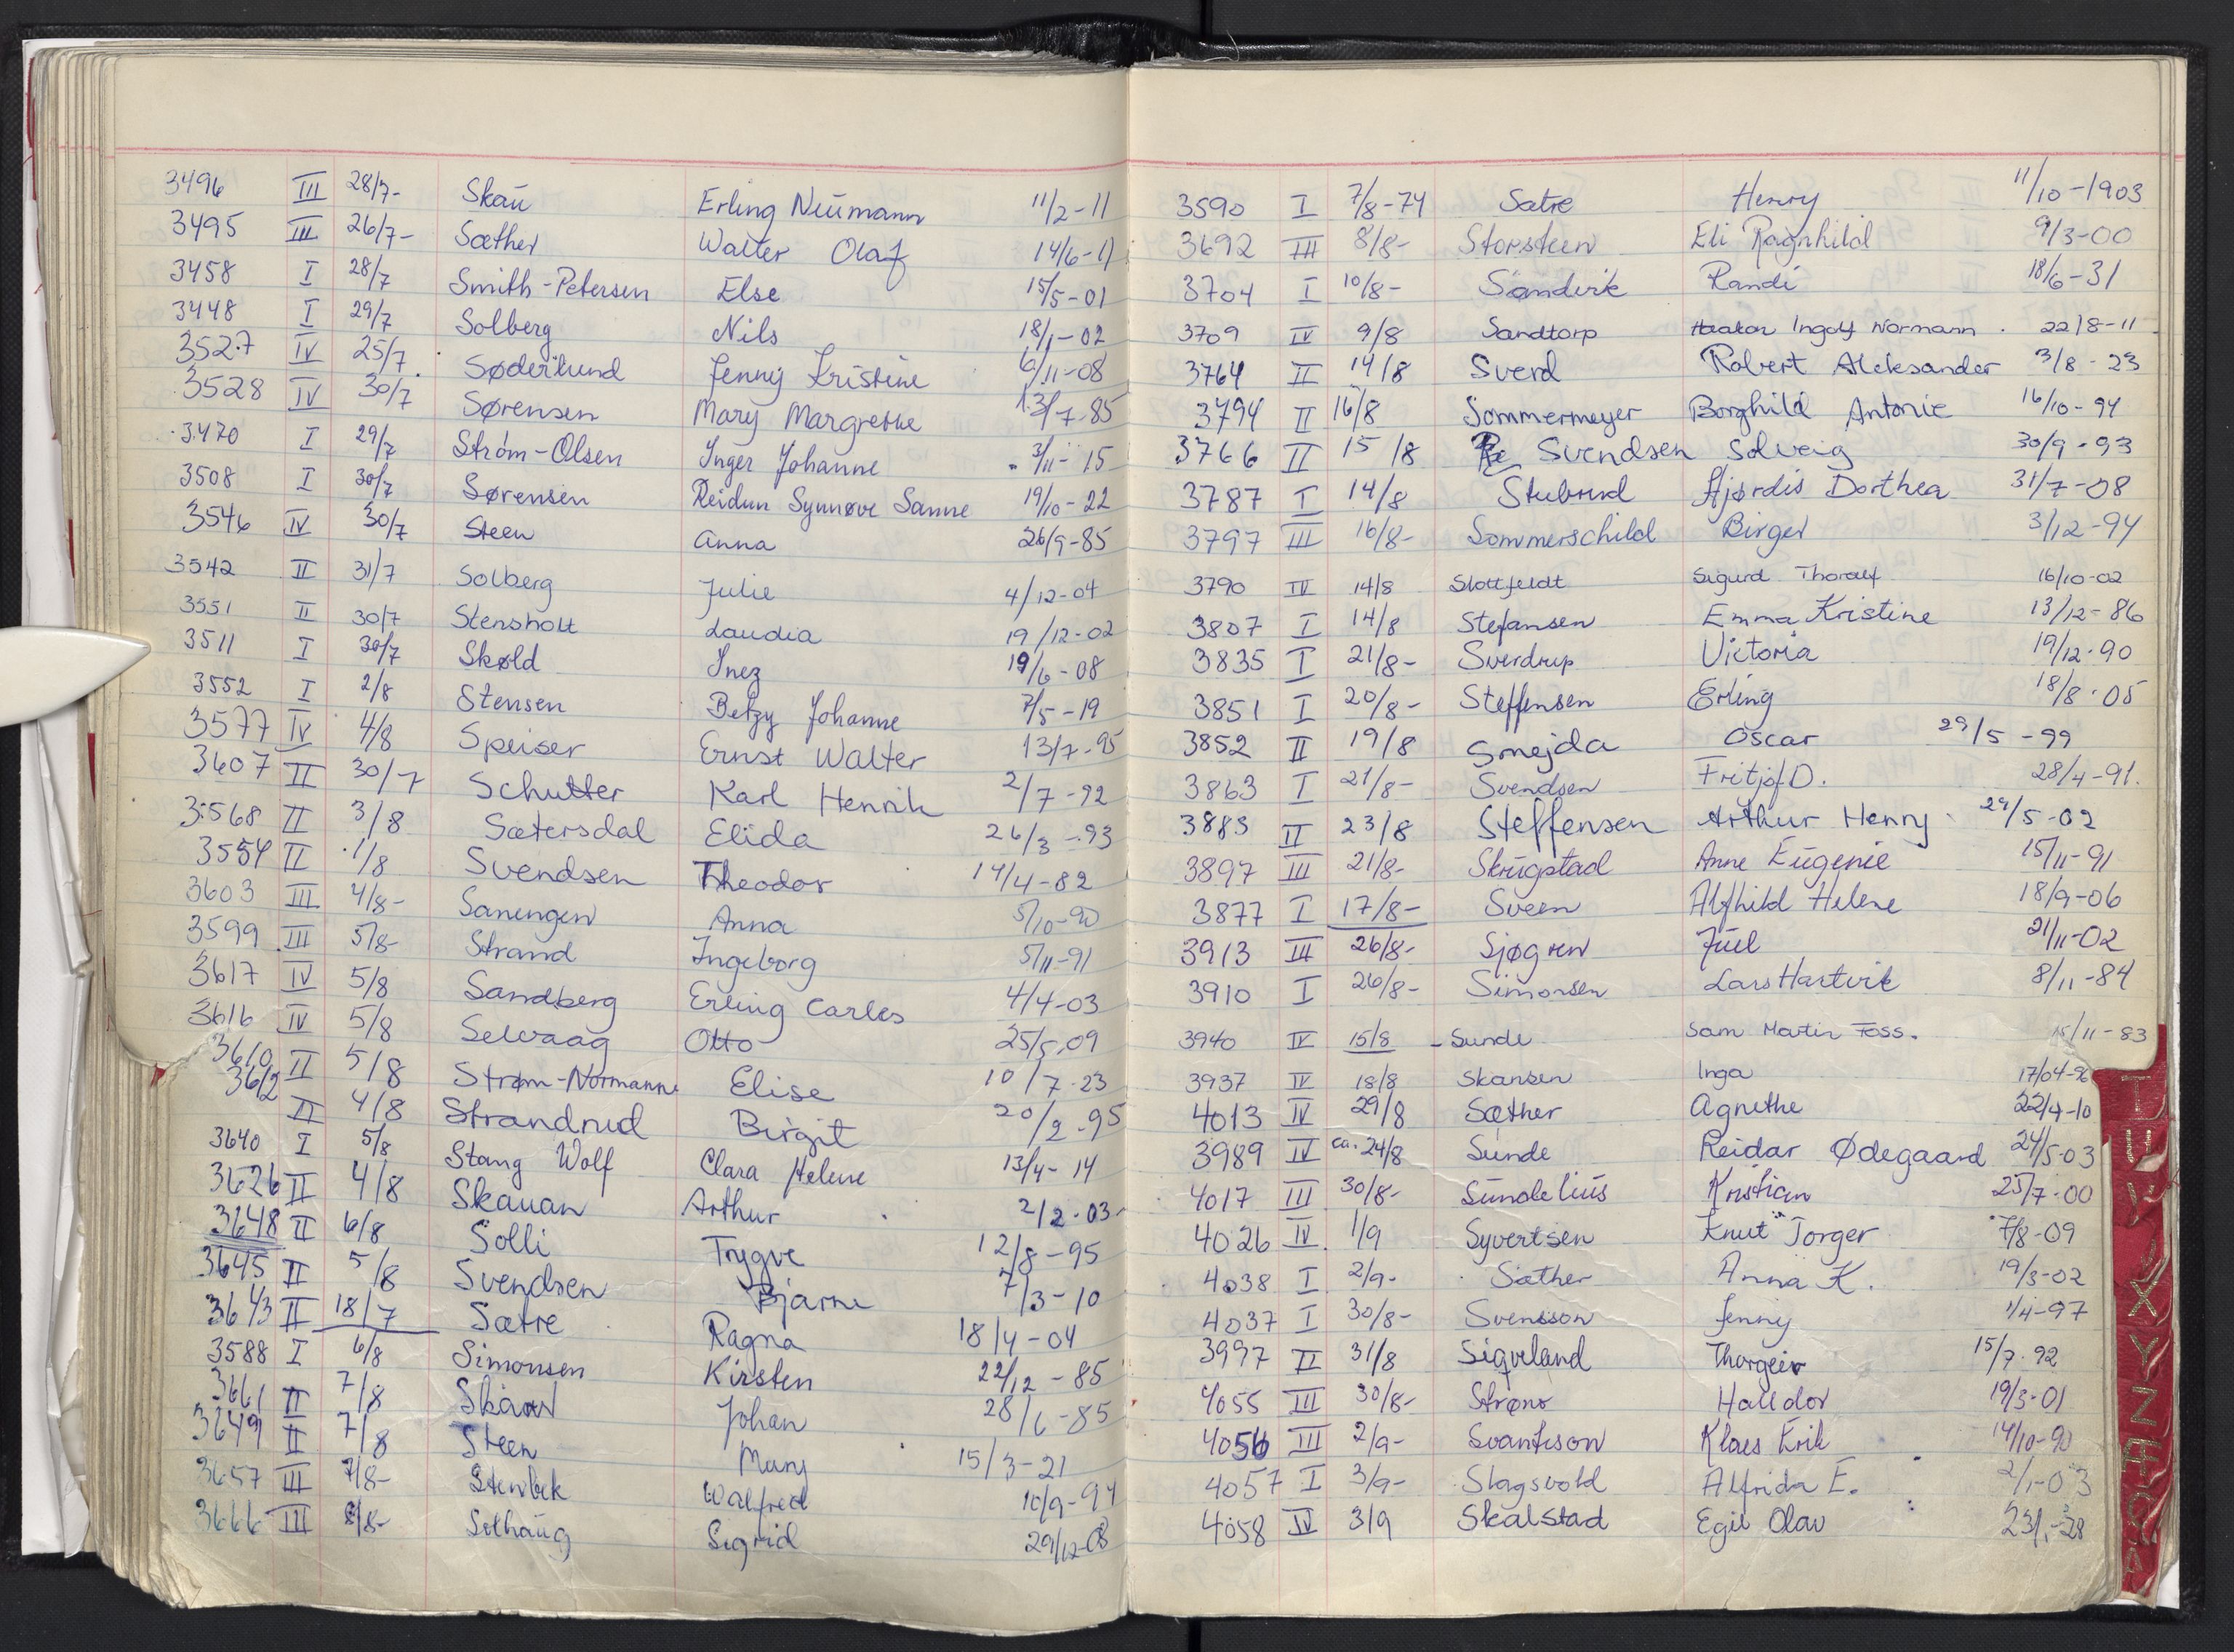 3496 III 28/7- Skau Erling Neumann 11/2-11
3495 III 26/7- Sæther Walter Olaf 14/6-11
3458 I 28/7 Smith-Petersen Else 15/5-01
3448 I 29/7 Solberg Nils 18/1-02
3527 IV 25/7 Søderlund Jenny Kristine 6/11-08
3528 IV 30/7 Sørensen Mary Margrethe 13/7-85
3470 I 29/7 Strøm-Olsen Inger Johanne 3/11-15
3508 I 30/7 Sørensen Reidun Synnøve Sanne 19/10-22
3546 IV 30/7 Steen Anna 26/9-85
3542 II 31/7 Solberg Julie 4/12-04
3551 II 30/7 Stensholt Laudia 19/12-02
3511 I 30/7 Skøld Inez 19/6-08
3552 I 2/8 Stensen Betzy Johanne 7/5-19
3577 IV 4/8 Speiser Ernst Walter 13/7-95
3607 II 30/7 Schutter Karl Henrik 2/7-92
3568 II 3/8 Sætersdal Elida 26/3-93
3554 II 1/8 Svendsen Theodor 14/4-82
3603 III 4/8- Sanengen Anna 5/10-90
3599 III 5/8- Strand Ingeborg 5/11-91
3617 IV 5/8 Sandberg Erling Carles 4/4-03
3616 IV 5/8 Selvaag Otto 25/5-09
3610 II 5/8 Strøm-Normanne Elise 10/7-23
3612 II 4/8 Strandrud Birgit 20/2-95
3640 I 5/8 Stang Wolf Clara Helene 13/4-14
3626 II 4/8 Skauan Arthur 2/2-03-
3648 II 6/8 Solli Trygve 12/8-95
3645 II 5/8 Svendsen Bjarne 7/3-10
3643 II 18/7 Sætre Ragna 18/4-04
3588 I 6/8 Simonsen Kirsten 22/12-85
3661 II 7/8 Skaar Johan 28/6-85
3649 II 7/8 Steen Mary 15/3-21
3657 III 7/8- Stenbek Walfred 10/9-94
3666 III 8/8- Solhaug Sigrid 29/12-08
3590 I 7/8-74 Sætre Henry 11/10-1903
3692 III 8/8- Storsteen Eli Ragnhild 9/3-00
3704 I 10/8- Sandvik Randi 18/6-31
3709 IV 9/8 Sandtorp Haakon Ingolf Normann 22/8-11
3764 II 14/8 Sverd Robert Aleksander 3/8-23
3794 II 16/8 Sommermeyer Borghild Antonie 16/10-94
3766 II 15/8 Svendsen Solveig 30/9-93
3787 I 14/8 Stubrud Hjørdis Dorthea 31/7-08
3797 III 16/8- Sommerschild Birger 3/12-94
3790 IV 14/8 Slottfeldt Sigurd Thoralf 16/10-02
3807 I 14/8 Stefansen Emma Kristine 13/12-86
3835 I 21/8- Sverdrup Victoria 19/12-90
3851 I 20/8- Steffensen Erling 18/8-05
3852 II 19/8 Smejda Oscar 29/5-99
3863 I 21/8- Svendsen Fritjof D. 28/4-91.
3883 II 23/8 Steffensen Arthur Henry 29/5-02
3897 III 21/8- Skrugstad Anne Eugenie 15/11-91
3877 I 17/8- Sveen Alfhild Helene 18/9-06
3913 III 26/8- Sjøgren Juel 21/11-02
3910 I 26/8- Simonsen Lars Hartvik 8/11-84
3940 IV 15/8 Sunde Sam Martin Foss. 15/11-83
3937 IV 18/8 Skansen Inga 17/04-96
4013 IV 29/8 Sæther Agnethe 22/4-10
3989 IV ca. 24/8 Sunde Reidar Ødegaard 24/5-03
4017 III 30/8- Sundelius Kristian 25/7-00
4026 IV 1/9 Syvertsen Knut Torger 7/8-09
4038 I 2/9- Sæther Anna K. 19/3-02
4037 I 30/8- Svensson Jenny 1/4-97
3997 II 31/8 Sigveland Thorgeir 15/7-92
4055 III 30/8- Strøno Halldor 19/3-01
4056 III 2/9- Svanteson Klaes Erik 14/10-90
4057 I 3/9- Slagsvold Alfrida E. 2/1-03
4058 IV 3/9 Skalstad Egil Olav 23/1-28
T
U
V
X
Y
Z
Æ
Ø